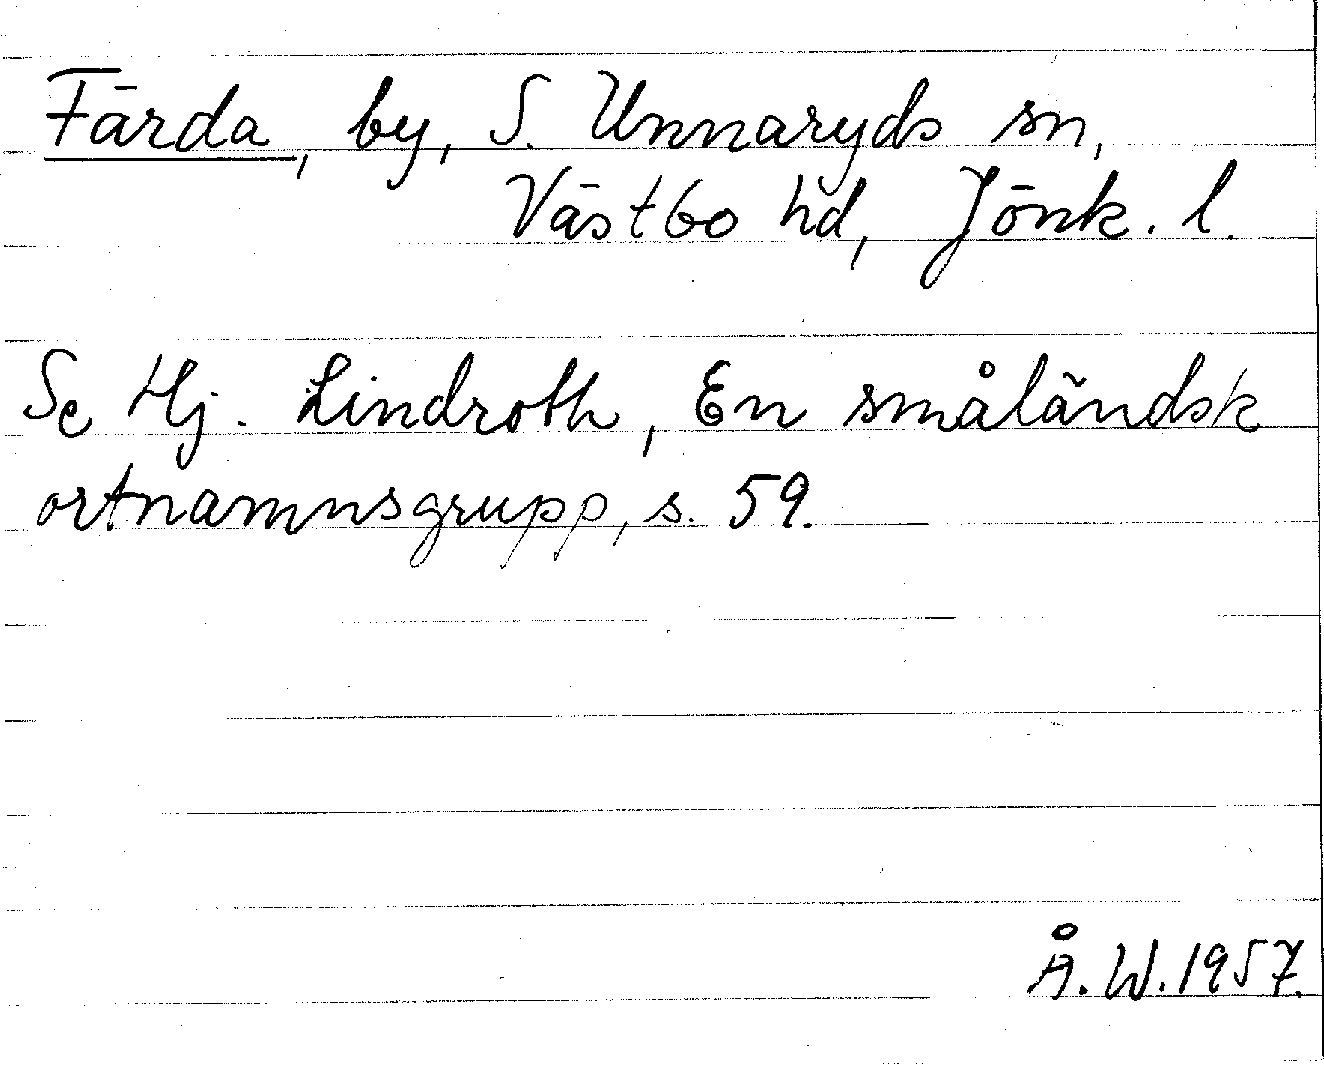 Färda, by, S. Unnaryds sn,
Västbo hd, Jönk. l.
Se Hj. Lindroth, En småländsk
ortnamnsgrupp, s. 59.
Å. W. 1957.